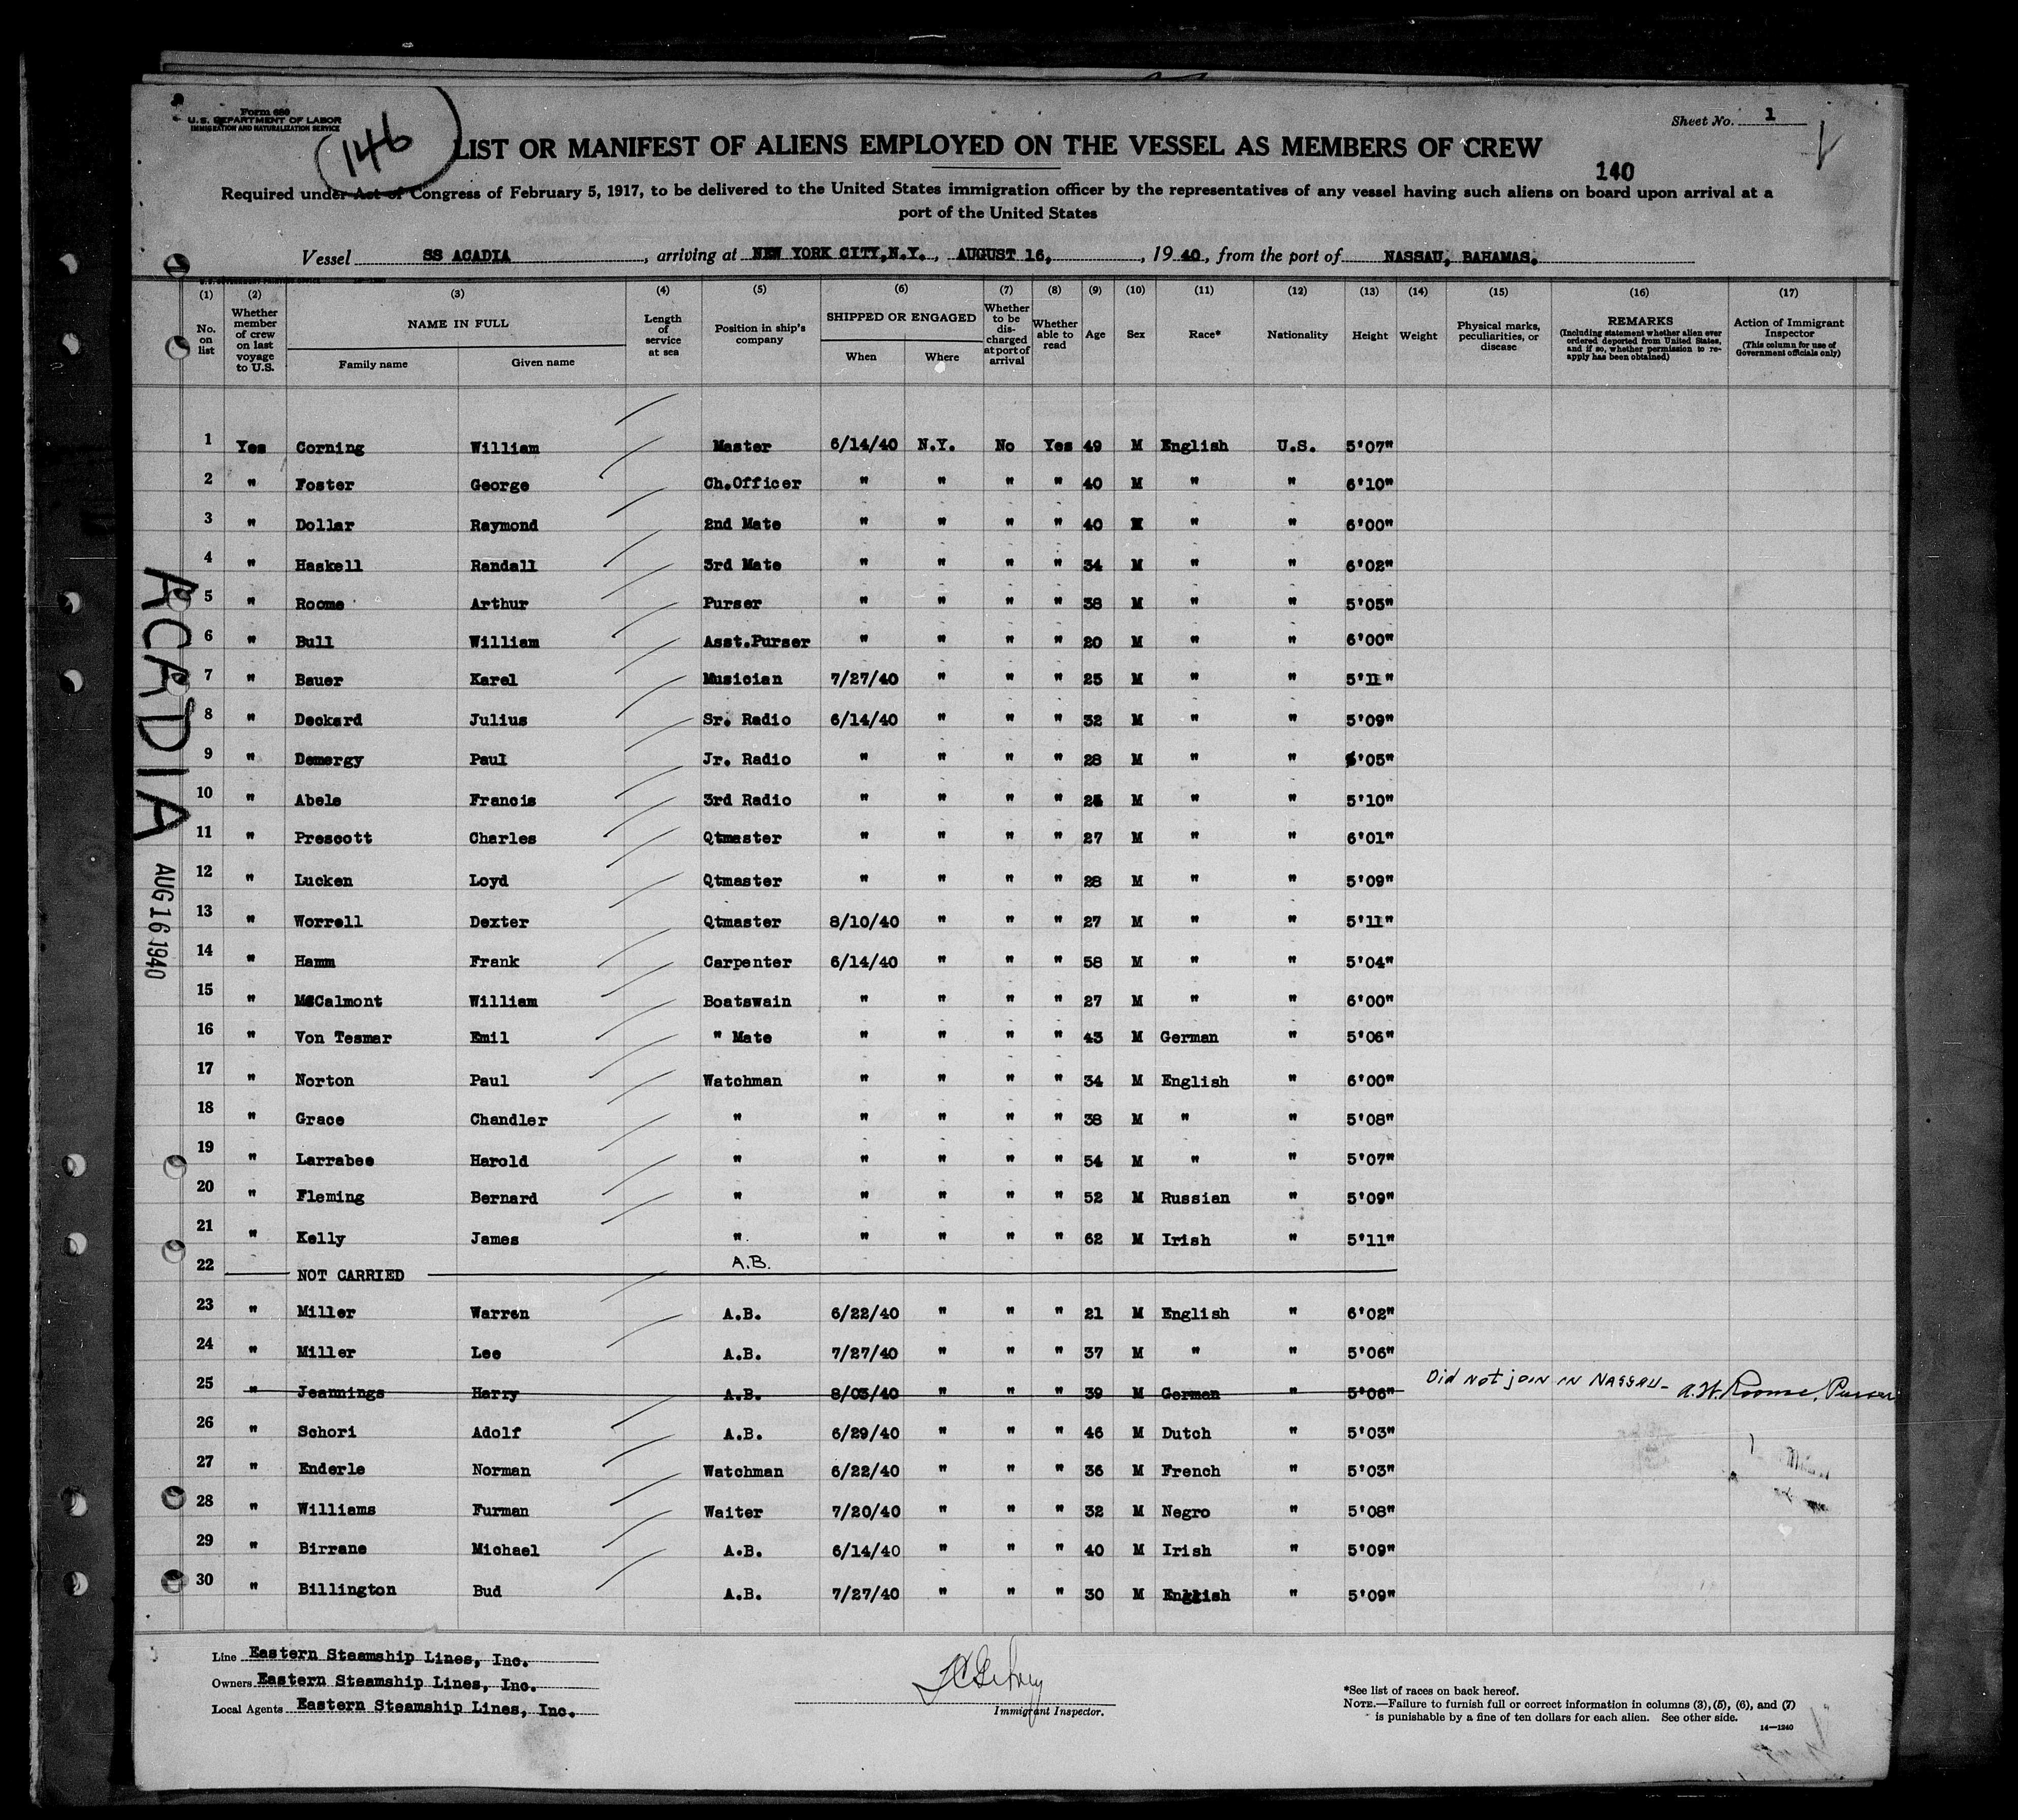 Form 680
U. S. DEPARTMENT OF LABOR
IMMIGRATION AND NATURALIZATION SERVICE
146
Sheet No. 1
LIST OR MANIFEST OF ALIENS EMPLOYED ON THE VESSEL AS MEMBERS OF CREW
140
Required under Act of Congress of February 5, 1917, to be delivered to the United States immigration officer by the representatives of any vessel having such aliens on board upon arrival at a
port of the United States
Vessel SS ACADIA, arriving at NEW YORK CITY,N.Y., AUGUST 16, , 19 40, from the port of NASSAU, BAHAMAS.
(1) (2) (3) (4) (5) (6) (7) (8) (9) (10) (11) (12) (13) (14) (15) (16) (17)
No. on list
Whether member of crew on last voyage to U.S.
NAME IN FULL
Family name Given name
Length of service at sea
Position in ship's company
SHIPPED OR ENGAGED
When Where
Whether to be discharged at port of arrival
Whether able to read
Age Sex Race* Nationality Height Weight
Physical marks, peculiarities, or disease
REMARKS
(Including statement whether alien ever ordered deported from United States, and if so, whether permission to reapply has been obtained)
Action of Immigrant Inspector
(This column for use of Government officials only)
1 Yes Corning William Master 6/14/40 N.Y. No Yes 49 M English U.S. 5'07"
2 " Foster George Ch.Officer " " " " 40 M " " 6'10"
3 " Dollar Raymond 2nd Mate " " " " 40 M " " 6'00"
4 " Haskell Randall 3rd Mate " " " " 34 M " " 6'02"
5 " Roome Arthur Purser " " " " 38 M " " 5'05"
6 " Bull William Asst.Purser " " " " 20 M " " 6'00"
7 " Bauer Karel Musician 7/27/40 " " " 25 M " " 5'11"
8 " Deckard Julius Sr. Radio 6/14/40 " " " 32 M " " 5'09"
9 " Demergy Paul Jr. Radio " " " " 28 M " " '05"
10 " Abele Francis 3rd Radio " " " " M " " 5'10"
11 " Prescott Charles Qtmaster " " " " 27 M " " 6'01"
12 " Lucken Loyd Qtmaster " " " " 28 M " " 5'09"
13 " Worrell Dexter Qtmaster 8/10/40 " " " 27 M " " 5'11"
14 " Hamm Frank Carpenter 6/14/40 " " " 58 M " " 5'04"
15 " McCalmont William Boatswain " " " " 27 M " " 6'00"
16 " Von Tesmar Emil " Mate " " " " 43 M German " 5'06"
17 " Norton Paul Watchman " " " " 34 M English " 6'00"
18 " Grace Chandler " " " " " 38 M " " 5'08"
19 " Larrabee Harold " " " " " 54 M " " 5'07"
20 " Fleming Bernard " " " " " 52 M Russian " 5'09"
21 " Kelly James " " " " " 62 M Irish " 5'11"
22 NOT CARRIED A.B.
23 " Miller Warren A.B. 6/22/40 " " " 21 M English " 6'02"
24 " Miller Lee A.B. 7/27/40 " " " 37 M " " 5'06"
25 " Jeannings Harry A.B. 8/03/40 " " " 39 M German " 5'06" Did not join in Nassau - A.W. Roome, Purser
26 " Schori Adolf A.B. 6/29/40 " " " 46 M Dutch " 5'03"
27 " Enderle Norman Watchman 6/22/40 " " " 36 M French " 5'03"
28 " Williams Furman Waiter 7/20/40 " " " 32 M Negro " 5'08"
29 " Birrane Michael A.B. 6/14/40 " " " 40 M Irish " 5'09"
30 " Billington Bud A.B. 7/27/40 " " " 30 M English " 5'09"
ACADIA
AUG 16 1940
Line Eastern Steamship Lines, Inc.
Owners Eastern Steamship Lines, Inc.
Local Agents Eastern Steamship Lines, Inc.
Immigrant Inspector.
*See list of races on back hereof.
NOTE.—Failure to furnish full or correct information in columns (3), (5), (6), and (7)
is punishable by a fine of ten dollars for each alien. See other side.
14—1240